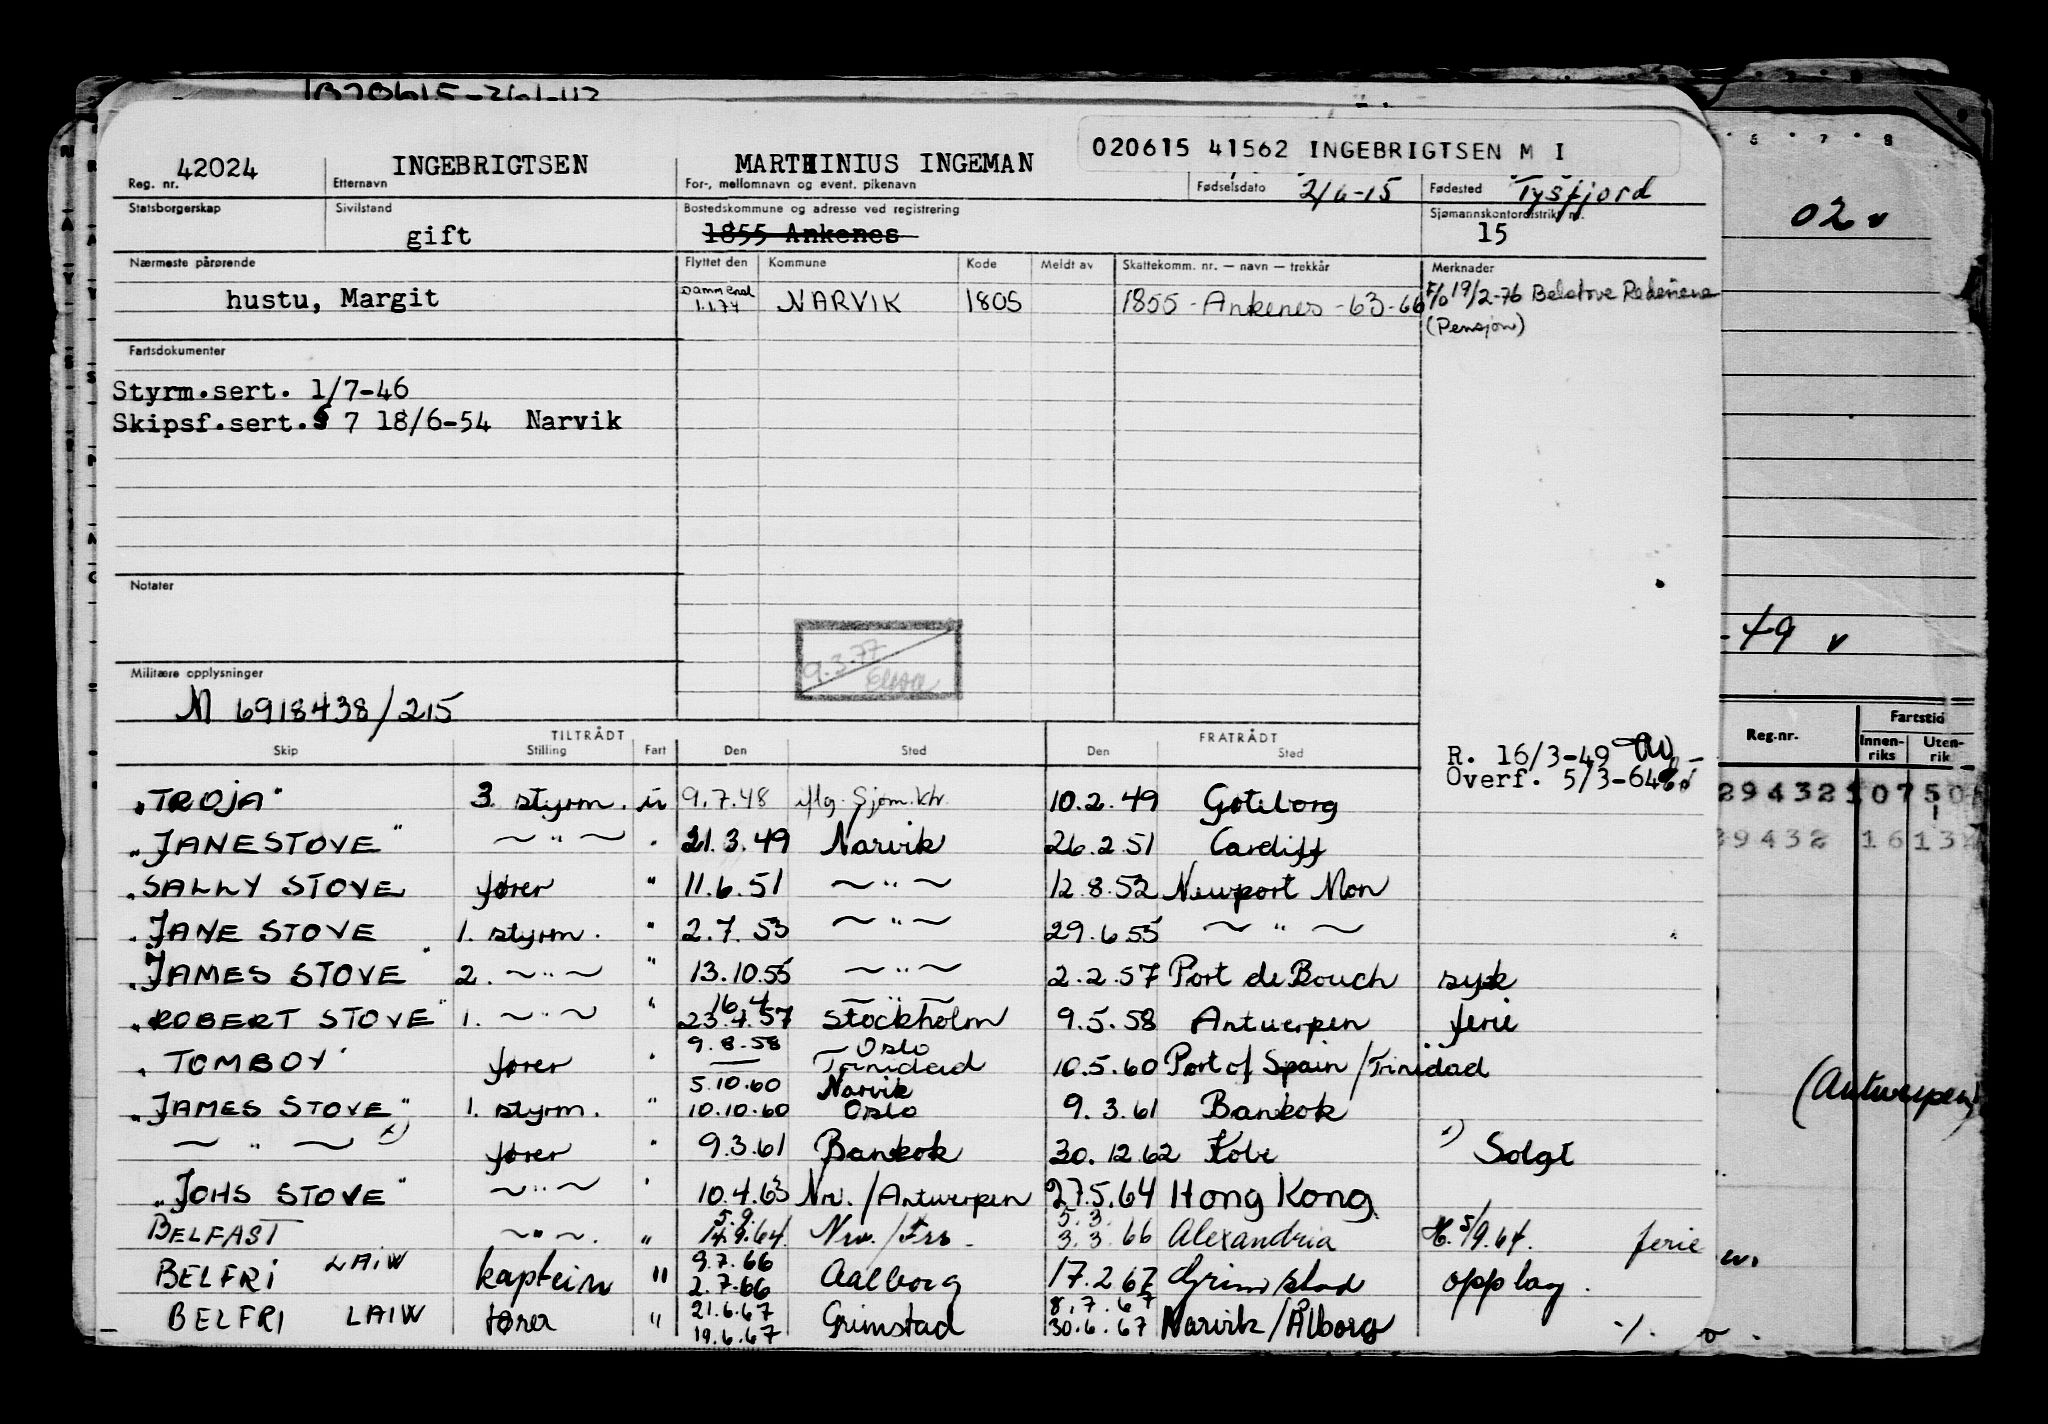 020615 41562 INGEBRIGTSEN M I
42024 INGEBRIGTSEN MARTHINIUS INGEMAN 2/6-15 Tysfjord
Reg. nr. Etternavn For-, mellomnavn og event. pikenavn Fødselsdato Fødested
Statsborgerskap Sivilstand Bostedskommune og adresse ved registrering Sjømannskontordistrikt nr.
gift 1855 Ankenes 15
Nærmeste pårørende Flyttet den Kommune Kode Meldt av Skattekomm. nr. — navn — trekkår Merknader
hustu, Margit 1.1.74 NARVIK 1805 1855 - Ankenes - 63-66 19/2-76 Belstove Rederiene
(Pensjon)
Fartsdokumenter
Styrm.sert. 1/7-46
Skipsf.sert.§ 7 18/6-54 Narvik
Notater
9.3.77
Militære opplysninger
M 6918438/215
TILTRÅDT FRATRÅDT
Skip Stilling Fart Den Sted Den Sted
R. 16/3-49
Overf. 5/3-64
"TROJA" 3. styrm. u 9.7.48 iflg. Sjøm.ktr. 10.2.49 Göteborg
"JANESTOVE" ~ " ~ " 21.3.49 Narvik 26.2.51 Cardiff
"SALLY STOVE fører " 11.6.51 ~ " ~ 12.8.52 Newport Mon
"JANE STOVE 1. styrm. " 2.7.53 ~ " ~ 29.6.55 ~ " ~
"JAMES STOVE" 2. ~ " ~ " 13.10.55 ~ " ~ 2.2.57 Port de Bouch syk
16.4
"ROBERT STOVE" 1. ~ " ~ " 23.4.57 Stockholm 9.5.58 Antwerpen ferie
9.8.58 Oslo
"TOMBOY" fører " — Trinidad 10.5.60 Port of Spain/Trinidad
5.10.60 Narvik
"JAMES STOVE" 1. styrm. " 10.10.60 Oslo 9.3.61 Bankok
~ " ~ x) fører " 9.3.61 Bankok 30.12.62 Kobe x) Solgt
"JOHS STOVE" ~ " ~ " 10.4.63 Nrv./Antwerpen 27.5.64 Hong Kong
5.9. 5.3.
BELFAST ~ " ~ " 14.9.64. Nrv./ 3.3.66 Alexandria 5/9.64. ferie
9.7.66
BELFRI LAIW kaptein " 2.7.66 Aalborg 17.2.67 Grimstad opplag.
21.6.67 8.7.67
BELFRI LAIW fører " 19.6.67 Grimstad 30.6.67 Narvik/Ålborg ./.
6 7 8
02 v
-49 v
Reg.nr. Fartstid
Innen-riks Uten-rik
29432 107 50
39432 16 13
(Antwerpen)